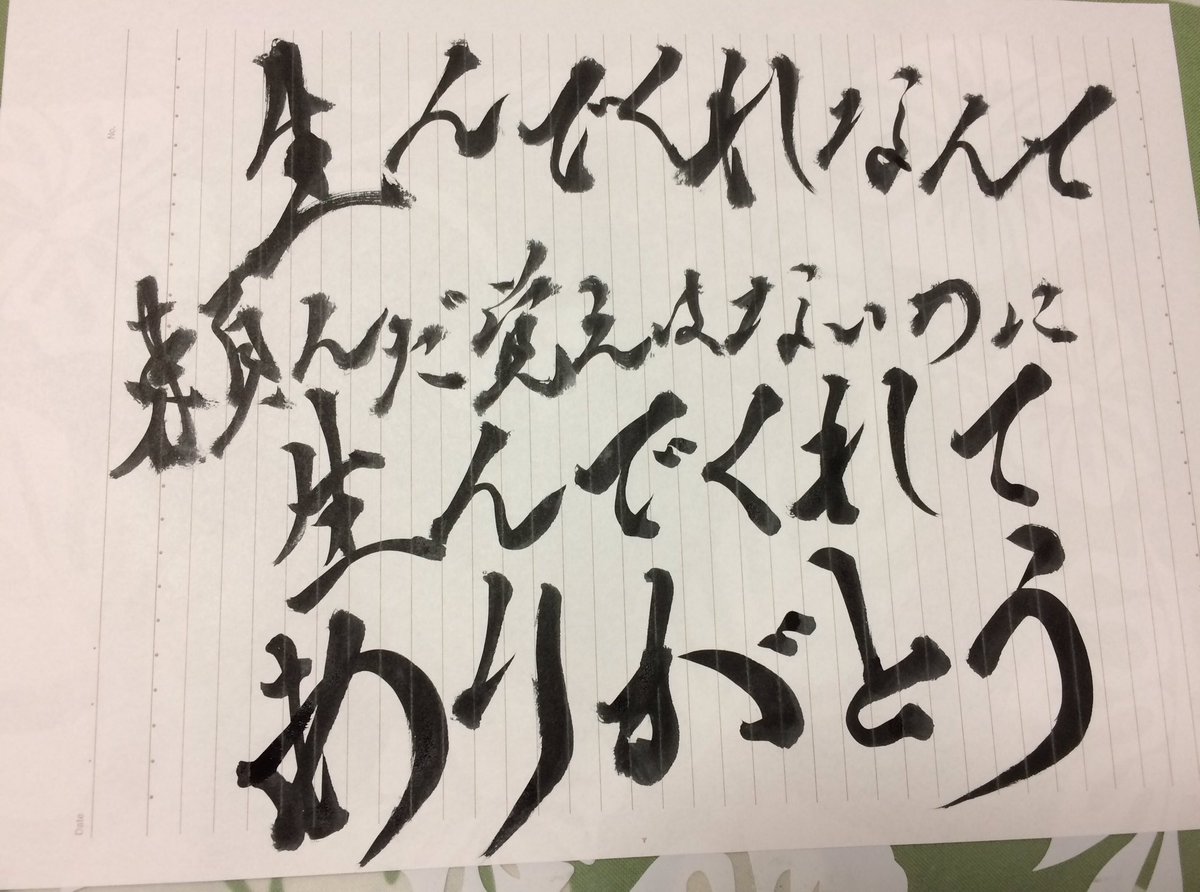 生んでくれなんて
頼んだ覚えはないのに
生んでくれて
ありがとう
No.
Date